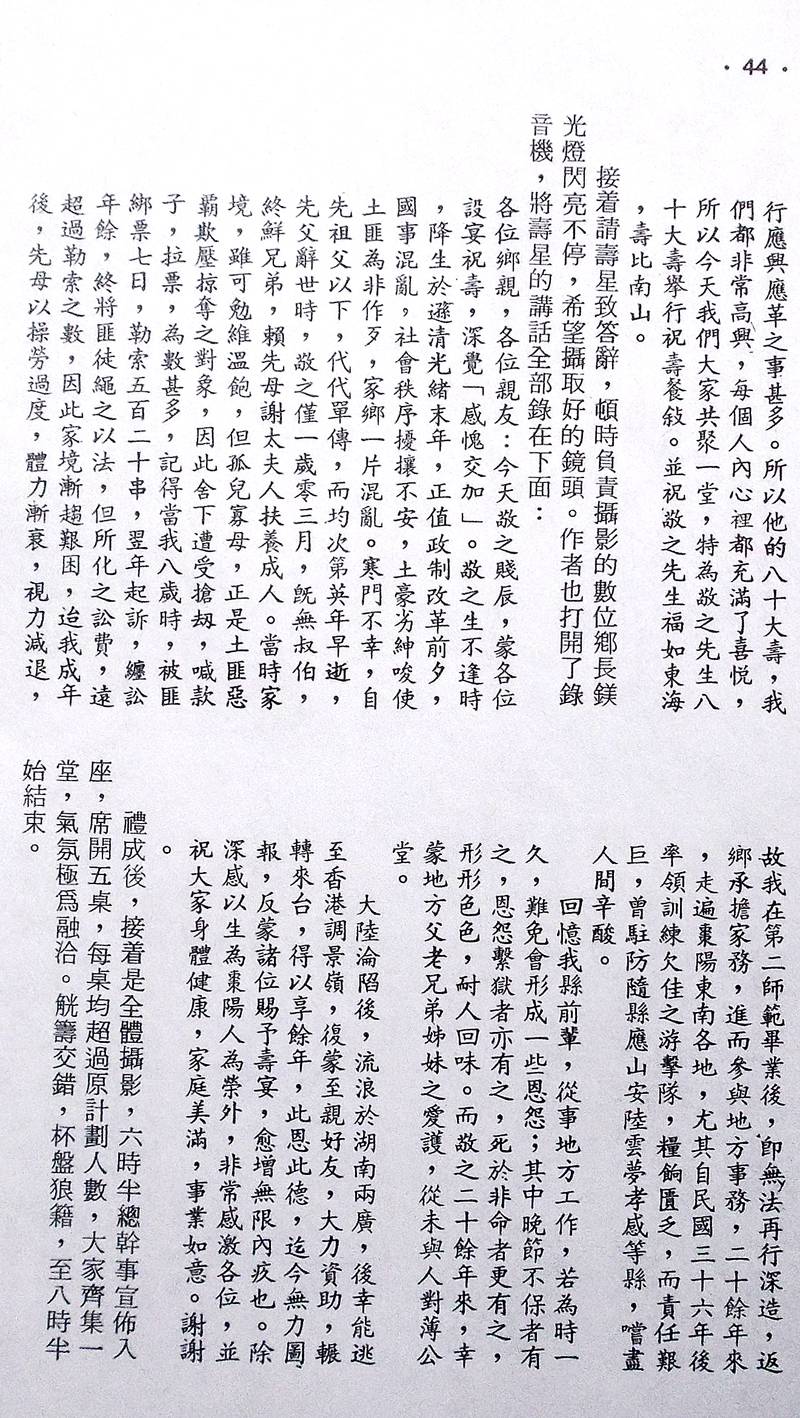 · 44 ·
行應興應革之事甚多。所以他的八十大壽，我
們都非常高興，每個人內心裡都充滿了喜悅，
所以今天我們大家共聚一堂，特為敬之先生八
十大壽舉行祝壽餐敍。並祝敬之先生福如東海
，壽比南山。
接着請壽星致答辭，頓時負責攝影的數位鄉長鎂
光燈閃亮不停，希望攝取好的鏡頭。作者也打開了錄
音機，將壽星的講話全部錄在下面：
各位鄉親，各位親友：今天敬之賤辰，蒙各位
設宴祝壽，深覺「感愧交加」。敬之生不逢時
，降生於遜清光緒末年，正值政制改革前夕，
國事混亂，社會秩序擾攘不安，土豪劣紳唆使
土匪為非作歹，家鄉一片混亂。寒門不幸，自
先祖父以下，代代單傳，而均次第英年早逝，
先父辭世時，敬之僅一歲零三月，旣無叔伯，
終鮮兄弟，賴先母謝太夫人扶養成人。當時家
境，雖可勉維溫飽，但孤兒寡母，正是土匪惡
霸欺壓掠奪之對象，因此舍下遭受搶刼，喊款
子，拉票，為數甚多，記得當我八歲時，被匪
綁票七日，勒索五百二十串，翌年起訴，纏訟
年餘，終將匪徒繩之以法，但所化之訟費，遠
超過勒索之數，因此家境漸趨艱困，迨我成年
後，先母以操勞過度，體力漸衰，視力減退，
故我在第二師範畢業後，卽無法再行深造，返
鄉承擔家務，進而參與地方事務，二十餘年來
，走遍棗陽東南各地，尤其自民國三十六年後
率領訓練欠佳之游擊隊，糧餉匱乏，而責任艱
巨，曾駐防隨縣應山安陸雲夢孝感等縣，嚐盡
人間辛酸。
回憶我縣前輩，從事地方工作，若為時一
久，難免會形成一些恩怨；其中晚節不保者有
之，恩怨繫獄者亦有之，死於非命者更有之，
形形色色，耐人回味。而敬之二十餘年來，幸
蒙地方父老兄弟姊妹之愛護，從未與人對薄公
堂。
大陸淪陷後，流浪於湖南兩廣，後幸能逃
至香港調景嶺，復蒙至親好友，大力資助，輾
轉來台，得以享餘年，此恩此德，迄今無力圖
報，反蒙諸位賜予壽宴，愈增無限內疚也。除
深感以生為棗陽人為榮外，非常感激各位，並
祝大家身體健康，家庭美滿，事業如意。謝謝
。
禮成後，接着是全體攝影，六時半總幹事宣佈入
座，席開五桌，每桌均超過原計劃人數，大家齊集一
堂，氣氛極爲融洽。觥籌交錯，杯盤狼籍，至八時半
始結束。